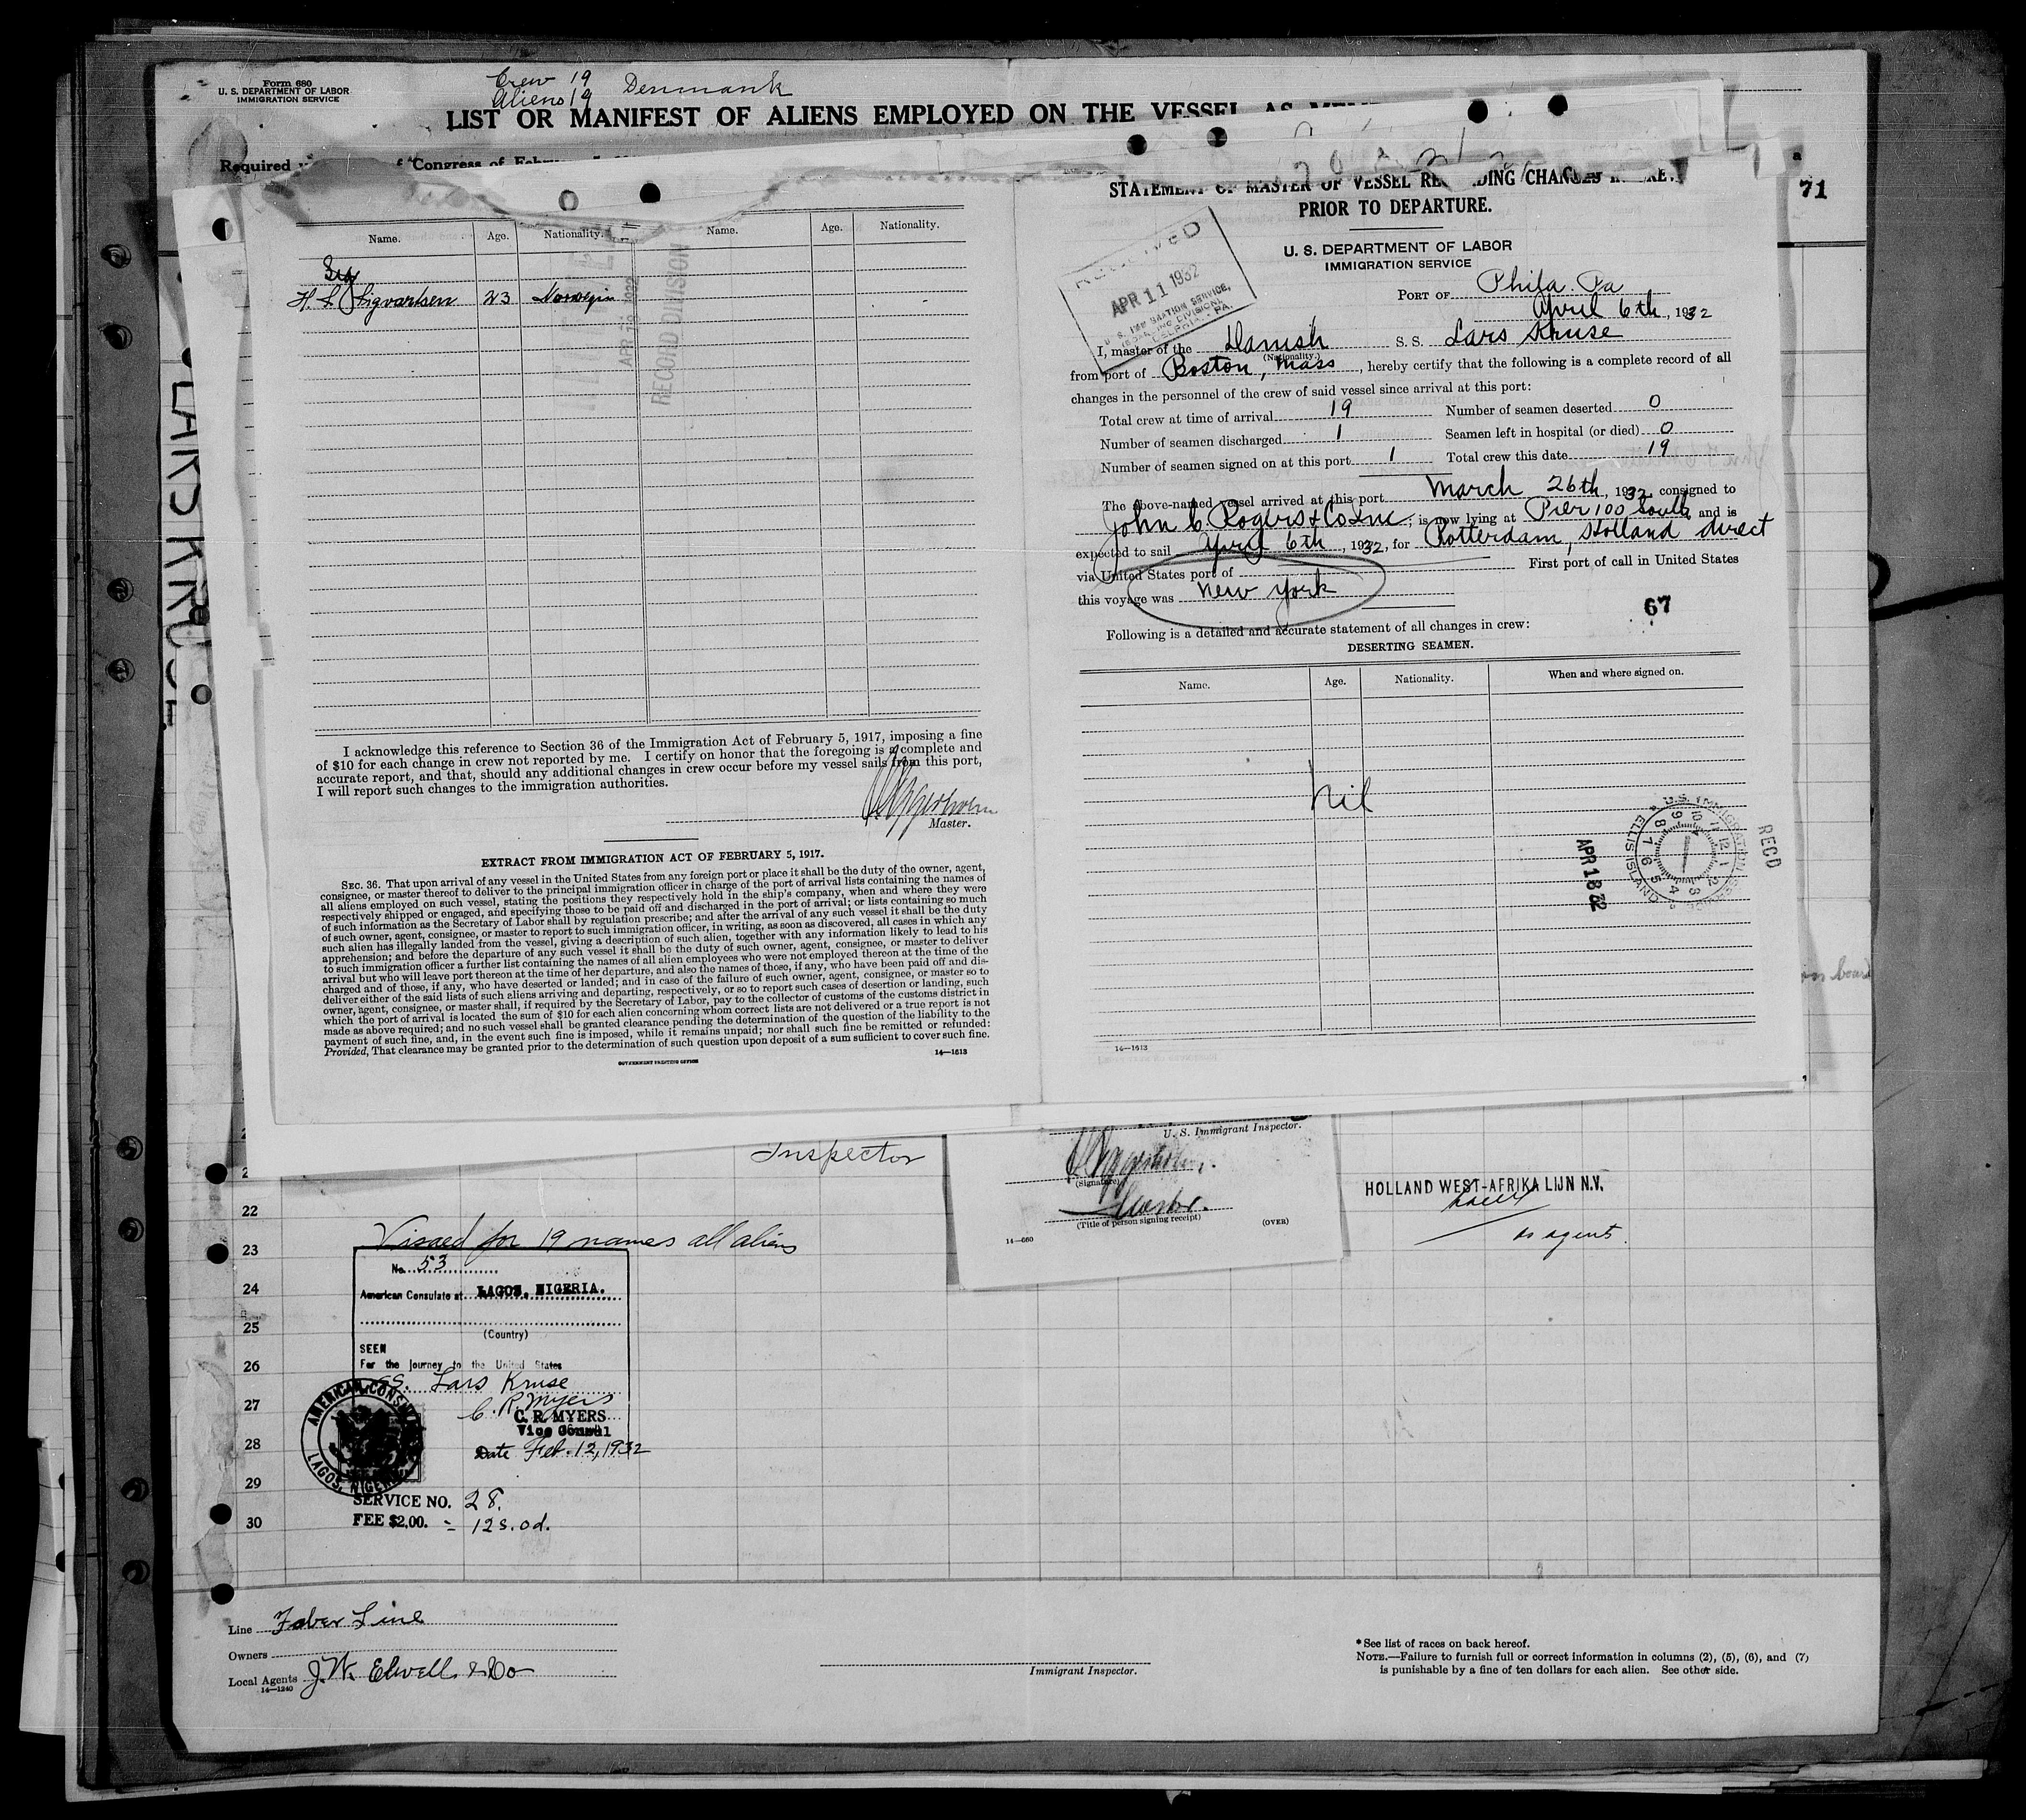 Form 680
U. S. DEPARTMENT OF LABOR
IMMIGRATION SERVICE
Crew 19
Aliens 19
Denmark
LIST OR MANIFEST OF ALIENS EMPLOYED ON THE VESSEL AS
Required
Congress of
71
LARS KRUSE
Name. Age. Nationality. Name. Age. Nationality.
Sig
H. S. Sigvartsen 23 Norwegin
APR 19 1932
RECORD DIVISION
I acknowledge this reference to Section 36 of the Immigration Act of February 5, 1917, imposing a fine
of $10 for each change in crew not reported by me. I certify on honor that the foregoing is a complete and
accurate report, and that, should any additional changes in crew occur before my vessel sails from this port,
I will report such changes to the immigration authorities.
Master.
EXTRACT FROM IMMIGRATION ACT OF FEBRUARY 5, 1917.
SEC. 36. That upon arrival of any vessel in the United States from any foreign port or place it shall be the duty of the owner, agent,
consignee, or master thereof to deliver to the principal immigration officer in charge of the port of arrival lists containing the names of
all aliens employed on such vessel, stating the positions they respectively hold in the ship's company, when and where they were
respectively shipped or engaged, and specifying those to be paid off and discharged in the port of arrival; or lists containing so much
of such information as the Secretary of Labor shall by regulation prescribe; and after the arrival of any such vessel it shall be the duty
of such owner, agent, consignee, or master to report to such immigration officer, in writing, as soon as discovered, all cases in which any
such alien has illegally landed from the vessel, giving a description of such alien, together with any information likely to lead to his
apprehension; and before the departure of any such vessel it shall be the duty of such owner, agent, consignee, or master to deliver
to such immigration officer a further list containing the names of all alien employees who were not employed thereon at the time of the
arrival but who will leave port thereon at the time of her departure, and also the names of those, if any, who have been paid off and dis-
charged and of those, if any, who have deserted or landed; and in case of the failure of such owner, agent, consignee, or master so to
deliver either of the said lists of such aliens arriving and departing, respectively, or so to report such cases of desertion or landing, such
owner, agent, consignee, or master shall, if required by the Secretary of Labor, pay to the collector of customs of the customs district in
which the port of arrival is located the sum of $10 for each alien concerning whom correct lists are not delivered or a true report is not
made as above required; and no such vessel shall be granted clearance pending the determination of the question of the liability to the
payment of such fine, and, in the event such fine is imposed, while it remains unpaid; nor shall such fine be remitted or refunded:
Provided, That clearance may be granted prior to the determination of such question upon deposit of a sum sufficient to cover such fine.
GOVERNMENT PRINTING OFFICE
14—1613
STATEMENT OF MASTER OF VESSEL REGARDING CHANGES IN CREW
PRIOR TO DEPARTURE.
U. S. DEPARTMENT OF LABOR
IMMIGRATION SERVICE
RECEIVED
APR 11 1932
U. S. IMMIGRATION SERVICE,
(BOARDING DIVISION)
PHILADELPHIA, PA.
PORT OF Phila. Pa
April 6th, 1932
I, master of the Danish S. S. Lars Kruse
(Nationality.)
from port of Boston, Mass, hereby certify that the following is a complete record of all
changes in the personnel of the crew of said vessel since arrival at this port:
Total crew at time of arrival 19 Number of seamen deserted 0
Number of seamen discharged 1 Seamen left in hospital (or died) 0
Number of seamen signed on at this port 1 Total crew this date 19
The above-named vessel arrived at this port March 26th, 1932, consigned to
John C Rogers & Co Inc, is now lying at Pier 100 South, and is
expected to sail April 6th, 1932, for Rotterdam, Holland direct
via United States port of First port of call in United States
this voyage was New York
67
Following is a detailed and accurate statement of all changes in crew:
DESERTING SEAMEN.
Name. Age. Nationality. When and where signed on.
nil
U.S. IMMIGRATION SERVICE
ELLIS ISLAND
APR 18 32
RECD
14—1613
on board
Inspector
U. S. Immigrant Inspector.
(Signature)
Master.
(Title of person signing receipt)
(OVER)
14—660
HOLLAND WEST-AFRIKA LIJN N.V.
as agents.
22
23
24
25
26
27
28
29
30
Visaed for 19 names all aliens
No. 53
American Consulate at LAGOS, NIGERIA.
(Country)
SEEN
For the journey to the United States
SS. Lars Kruse
C. R. Myers
C. R. MYERS
Vice Consul
Date Feb. 12, 1932
AMERICAN CONSULATE
LAGOS, NIGERIA
SERVICE NO. 28.
FEE $2.00. = 12s.0d.
Line Faber Line
Owners
Local Agents J. W. Elwell & Co
14—1240
Immigrant Inspector.
* See list of races on back hereof.
NOTE.—Failure to furnish full or correct information in columns (2), (5), (6), and (7)
is punishable by a fine of ten dollars for each alien. See other side.